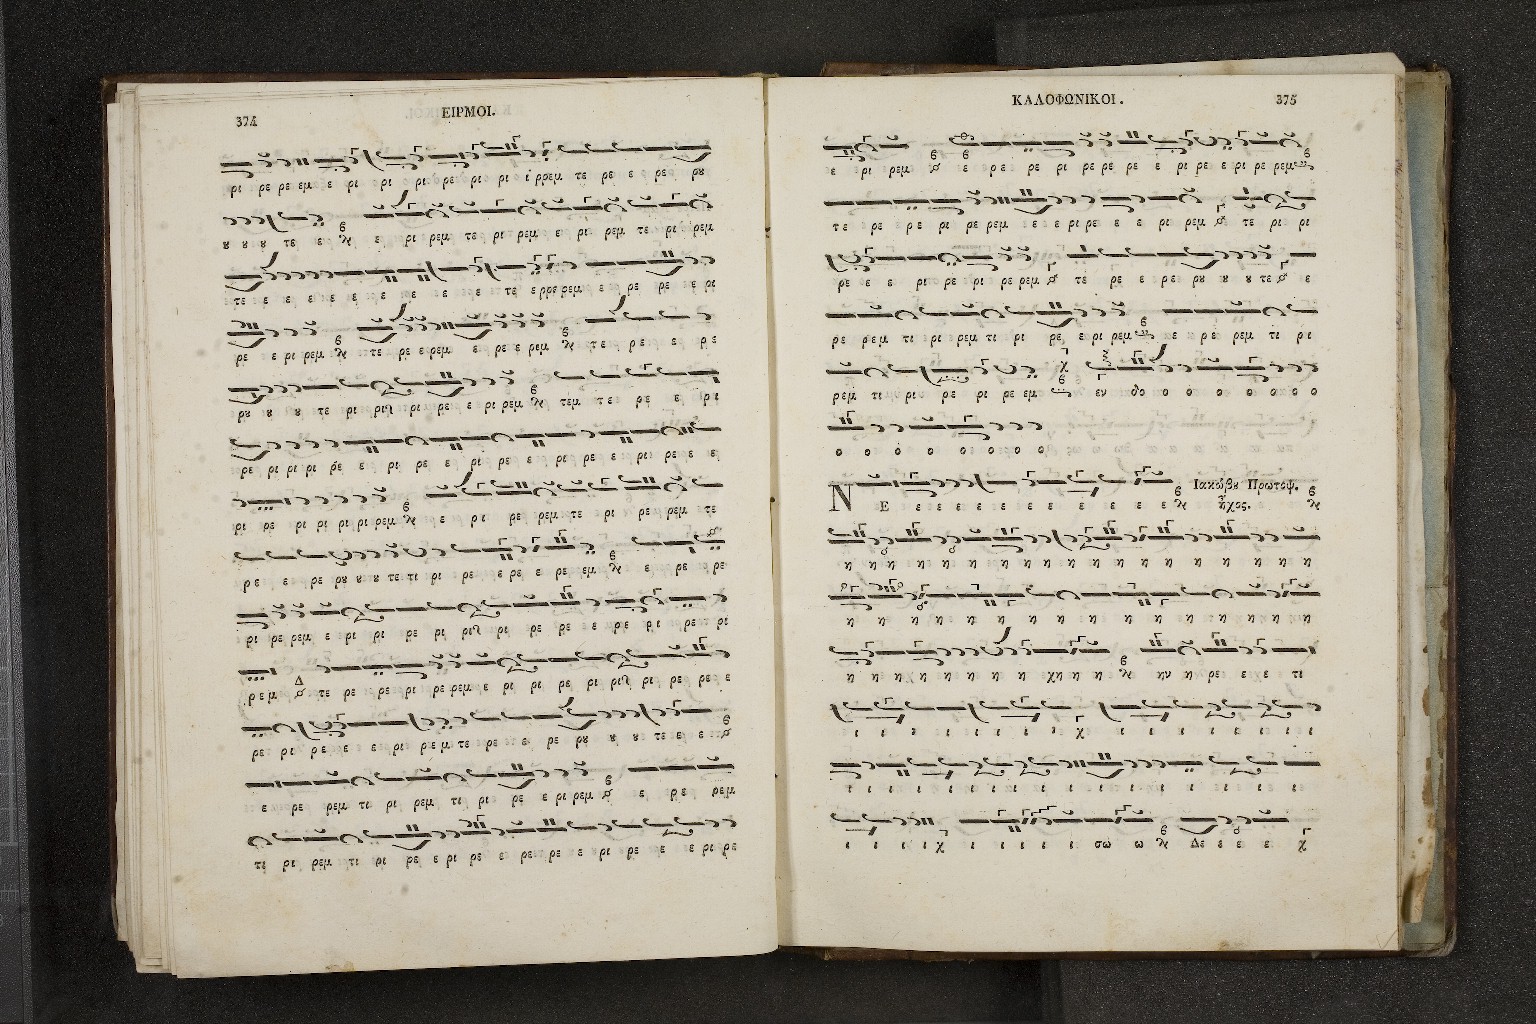 374
ΕΙΡΜΟΙ.
ρι ρε ρε εμ ε ρι ρι ρι ρε ρι ρι ι ρρεμ τε ρε ε ρε ρȣ
ȣ ȣ ȣ τε ε ε ρι ρεμ τε ρι ρεμ ε ρι ρεμ τε ρι ρεμ
τε ε ε ε ε ε ε ε ε ε ε τε ερρερεμ ε ρε ρε ε ρι
ρε ε ρι ρεμ τε ρε ερεμ ε ρε ε ριμ τε ρε ε ρε
ρȣ ȣ ȣ τε ρι ρι ρι ρε ε ρι ρεμ τεμ τε ρε ε ρι
ρε ρι ρι ρι ρε ε ρι ρε ε ρι ρε ε ρι ρε ε ρι ρε ε
ρι ρε ρι ρι ρι ρι ρεμ ε ρι ρε ρεμ τε ρι ρε ρεμ τε
ρε ε ρε ρȣ ȣ ȣ τε τι ρι ρε ε ρε ε ρε εμ ε ρε ρε
ρι ρε ρεμ ε ρι ρι ρε ρι ρι ρε ρε ε ρε ρι ρε ρι
ρεμ Δ τε ρε ρε ρι ρε ρεμ ε ρι ρι ρε ρι ρι ρι ρε ρε ε
ρε ρι ρε ε ε ρι ρεμ τε ρε ε ρε ρȣ ȣ ȣ τε ε ε
ε ρε ρεμ τι ρι ρεμ τι ρι ρε ε ρι ρεμ ε ρε ρεμ
τι ρι ρεμ τι ρι ρε ε ρι ρε ε ρε ρε ε ρι ρε ε ε ρι ρε
ΚΑΛΟΦΩΝΙΚΟΙ.
375
ε ρι ρεμ ε ρε ρε ρι ρε ρε ρε ε ρι ρε ε ρι ρε ρεμ
τε ρε ρε ρι ρε ρεμ ε ε ρι ρε ε ε ρι ρεμ τε ρι ρι
ρε ε ε ρι ρε ρι ρε ρεμ τε ρε ε ρε ρȣ ȣ ȣ τε ε
ρε ρεμ τι ρι ρεμ τι ρι ρε ε ρι ρεμ ε ρε ρεμ τι ρι
ρεμ τι ρι ρε ρι ρε εμ χ εν ο ο ο ο ο ο ο ο
ο ο ο ο ο ο ο ο
ΝΕ ε ε ε ε ε ε ε ε ε ε ε Ιακώβȣ Πρωτοψ. ἦχος.
η η η η η η η η η η η η η η η η
η η η η η η η η η η η η η η
η η η η η η η χη η η ην η ρε ε ε τι
ι ι ι ι ι ι ι χ ι ι ι ι ι ι ι
ι ι ι ι ι ι ι ι ι ι ι ι ι ι ι ι
ι ι ι ι χ ι ι ι ι ι σω ω Δε ε ε ε χ